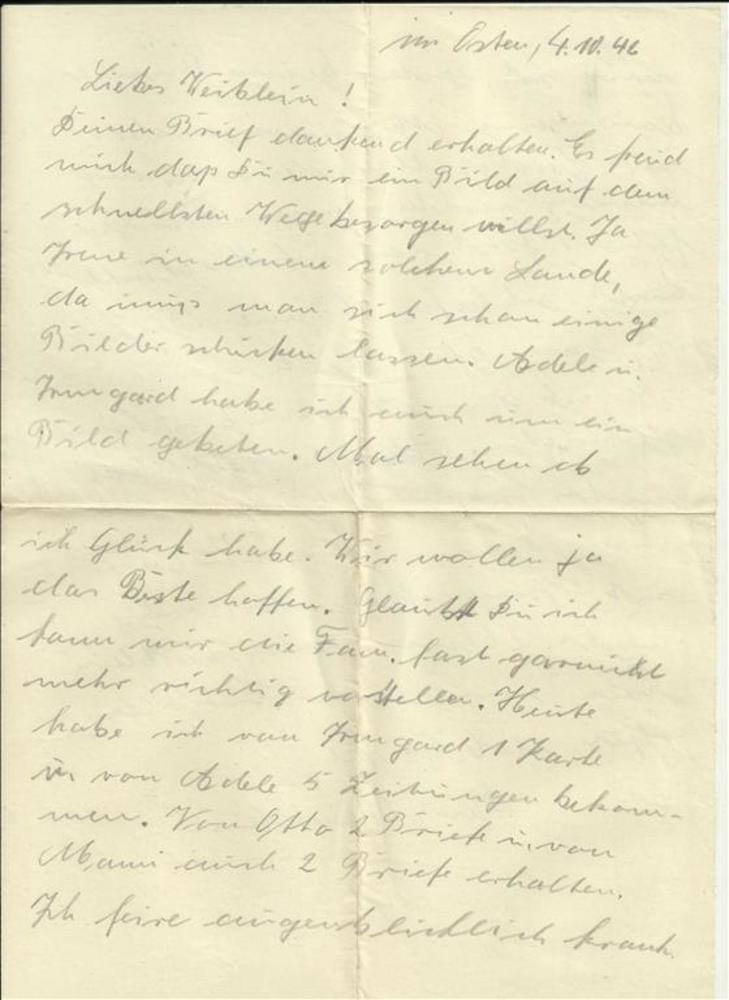 im Osten, 4.10.42
Liebes Weiblein!
Deinen Brief dankend erhalten. Es freud
mich daß Du mir ein Bild auf dem
schnellsten Wege besorgen willst. Ja
Irene in einem solchem Lande,
da muß man sich schon einige
Bilder schicken lassen. Adele u.
Irmgard habe ich auch um ein
Bild gebeten. Mal sehen ob
ich Glück habe. Wir wollen ja
das Beste hoffen. Glaubst Du ich
kann mir die Fam. fast garnicht
mehr richtig vorstellen. Heute
habe ich von Irmgard 1 Karte
u. von Adele 5 Zeitungen bekom-
men. Von Otto 2 Briefe u. von
Mami auch 2 Briefe erhalten.
Ich feire augenblicklich krank.